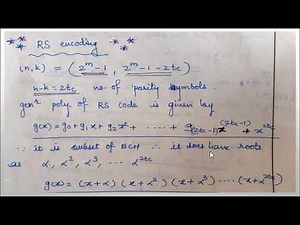 RS encoding
(n, k) = (2^m-1, 2^m-1-2tc)
n-k=2tc no. of parity symbols.
gen^r poly of RS code is given by
g(x) = g0+g1x+g2x²+ ------ +g(2tc-1)x^(2tc-1) + x^2tc
∴ it is subset of BCH ∴ it does have roots
as α, α², α³, ---- α^2tc
g(x) = (x+α)(x+α²)(x+α³)-----(x+α^2tc)